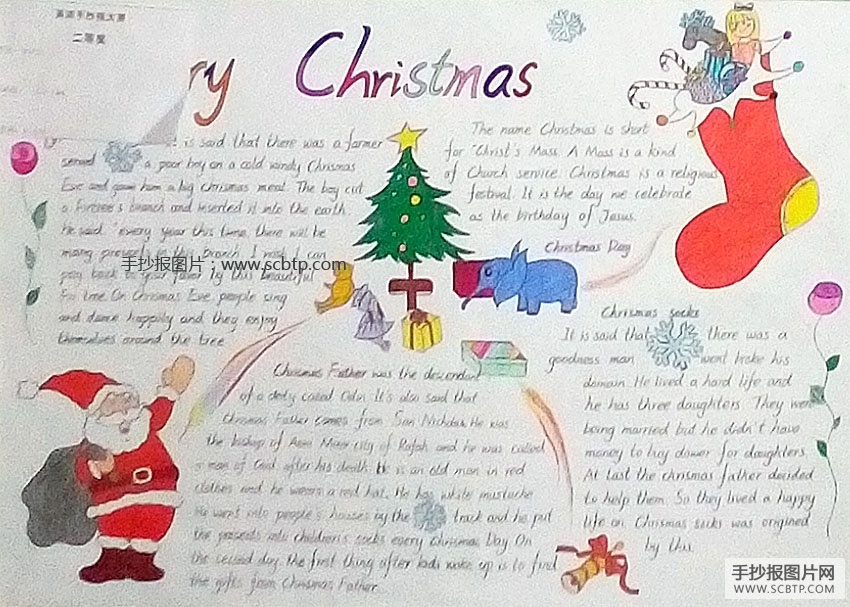 英语手抄报大赛
二等奖
ry Christmas
t is said that there was a farmer
served a poor boy on a cold windy Chrismas
Eve and gave him a big chrismas meal. The boy cut
a branch and inserted it into the earth.
He said. "every year this time, there will be
many presents in this branch. I can
pay back to your favor by this beautiful
tree. On Chrismas Eve, people sing
and dance happily and they enjoy
themselves around the tree
The name Christmas is short
for "Christ's Mass. A Mass is a kind
of Church service. Christmas is a religious
festival. It is the day we celebrate
as the birthday of Jesus.
Christmas Day
手抄报图片：www.scbtp.com
Chrismas socks
It is said that there was a
goodness man went broke his
domain. He lived a hard life and
he has three daughters. They were
being married but he didn't have
money to buy dower for daughters.
At last the chrismas father decided
to help them. So they lived a happy
life on. Chrismas socks was origined
by this.
Chrismas Father was the descendant
of a deity called Odin. It's also said that
Chrismas Father comes from San Nicholas. He was
the bishop of Minor city of and he was called
a man of God after his death. He is an old man in red
clothes and he wears a red hat. He has white mustache
He went into people's houses by the track and he put
the presents into children's socks every Chrismas Day. On
the second day, the first thing after kids wake up is to find
the gifts from Chrismas Father.
手抄报图片网
WWW.SCBTP.COM